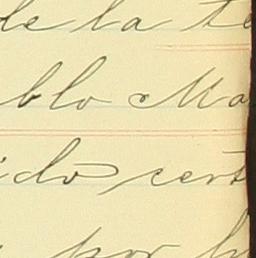 de la te
blo Ma
ido cert
por h